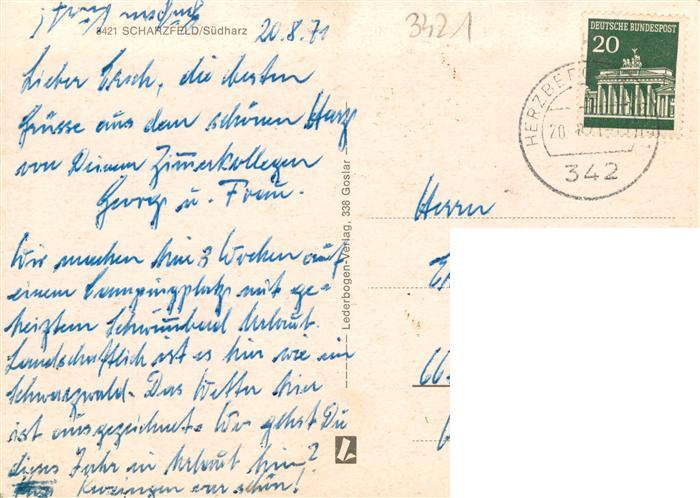 3421 SCHARZFELD/Südharz
20.8.71
3421
Lieber Erich, die besten
Grüsse aus dem schönen Harz
von Deinem Zimmerkollegen
Georg u. Frau.
Wir machen hier 3 Wochen auf
einem Campingplatz mit ge-
heiztem Schwimmbad Urlaub.
Landschaftlich ist es hier wie im
Schwarzwald. Das Wetter hier
ist ausgezeichnet. Wo gehst Du
dieses Jahr in Urlaub hin?
war schön!
Lederbogen-Verlag, 338 Goslar
DEUTSCHE BUNDESPOST
20
HERZBERG
20.
342
Herrn
66